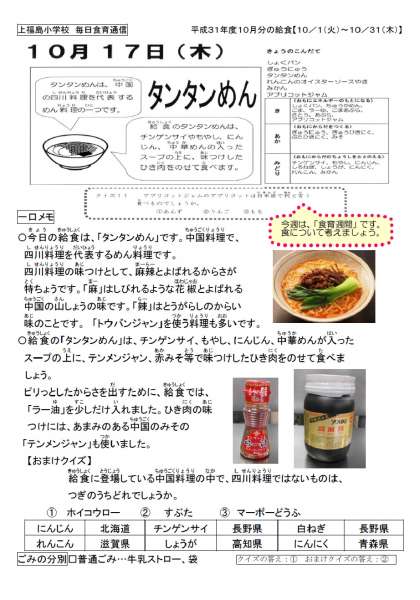 上福島小学校　毎日食育通信
平成31年度10月分の給食【10／1（火）～10／31（木）】
10月17日（木）
タンタンめんは、中国
の四川料理を代表する
めん料理の一つです。
タンタンめん
給食のタンタンめんは、
チンゲンサイやもやし、にん
じん、中華めんの入った
スープの上に、味つけした
ひき肉をのせて食べます。
きょうのこんだて
しょくパン
ぎゅうにゅう
タンタンめん
れんこんのオイスターソースやき
みかん
アプリコットジャム
き
あか
みどり
①あんず　②りんご　③もも
一口メモ
今週は、「食育週間」です。
食について考えましょう。
○今日の給食は、「タンタンめん」です。中国料理で、
四川料理を代表するめん料理です。
四川料理の味つけとして、麻辣とよばれるからさが
特ちょうです。「麻」はしびれるような花椒とよばれる
中国の山しょうの味です。「辣」はとうがらしのからい
味のことです。「トウバンジャン」を使う料理も多いです。
○給食の「タンタンめん」は、チンゲンサイ、もやし、にんじん、中華めんが入った
スープの上に、テンメンジャン、赤みそ等で味つけしたひき肉をのせて食べま
しょう。
ピリっとしたからさを出すために、給食では、
「ラー油」を少しだけ入れました。ひき肉の味
つけには、あまみのある中国のみその
「テンメンジャン」も使いました。
【おまけクイズ】
給食に登場している中国料理の中で、四川料理ではないものは、
つぎのうちどれでしょうか。
①　ホイコウロー　②　すぶた　③　マーボーどうふ
にんじん　北海道　チンゲンサイ　長野県　白ねぎ　長野県
れんこん　滋賀県　しょうが　高知県　にんにく　青森県
ごみの分別　□普通ごみ…牛乳ストロー、袋
クイズの答え：①　おまけクイズの答え：②